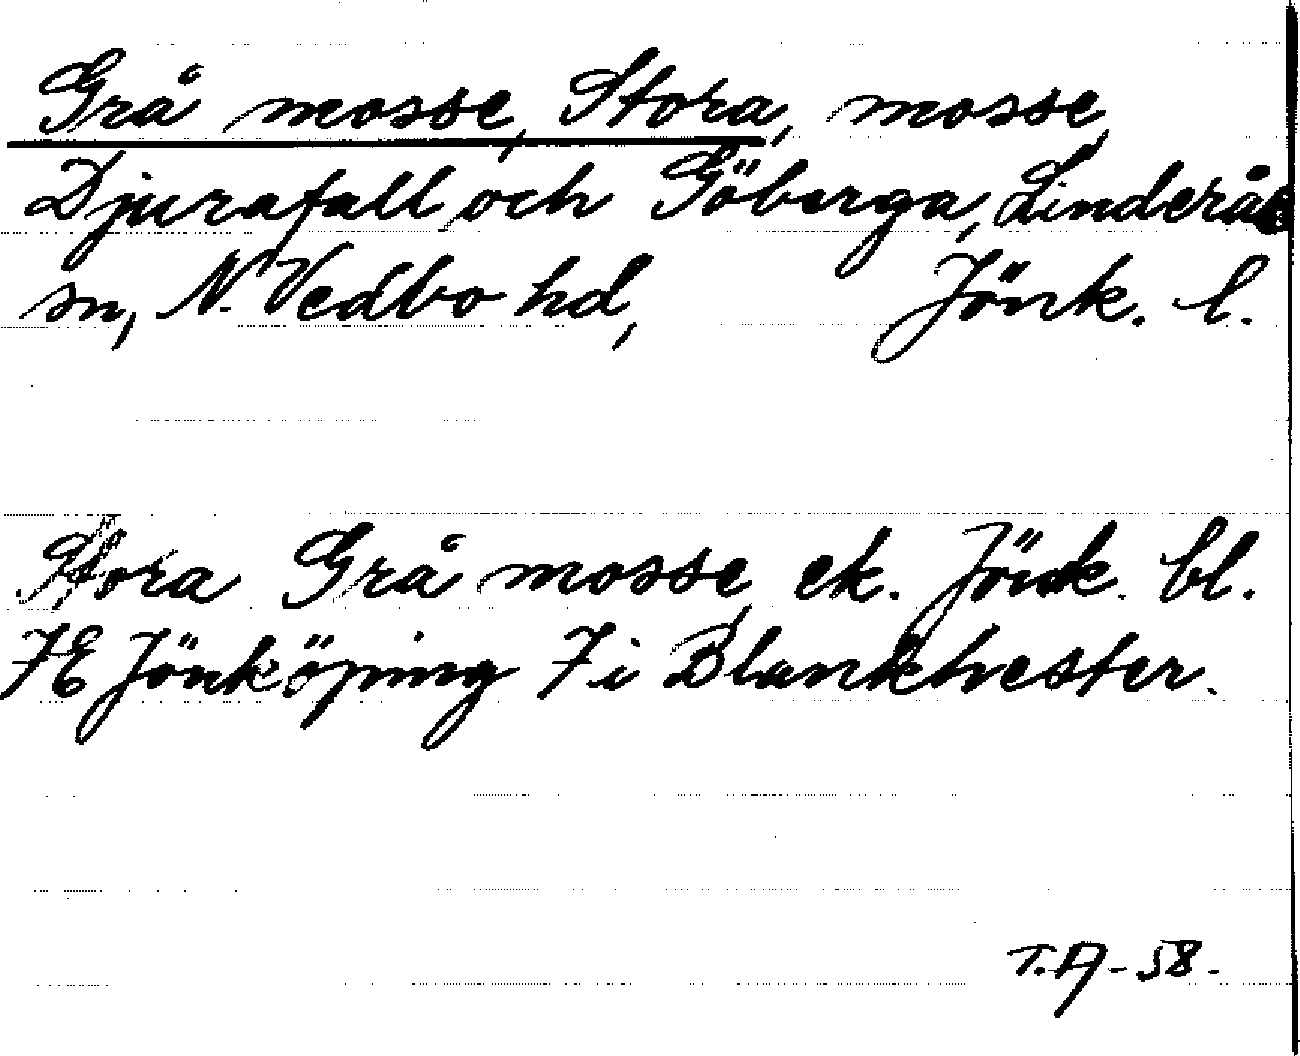 Grå mosse, Stora, mosse,
Djurafall och Göberga, Linderås
sn, N. Vedbo hd, Jönk. l.
Stora Grå mosse, ek. Jönk. bl.
7E Jönköping 7 i Blankhester.
T.A-58.